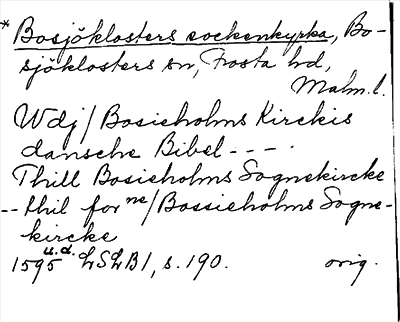 * Bosjöklosters sockenkyrka, Bo-
sjöklosters sn, Frosta hd,
Malm. l.
Wdj / Bosieholms Kirckis
dansche Bibel - - - .
Thill Bosieholms Sognekircke
-- thil for ne / Bossieholms Sogne-
kircke
1595 u.d. LSLB1, s. 190. orig.